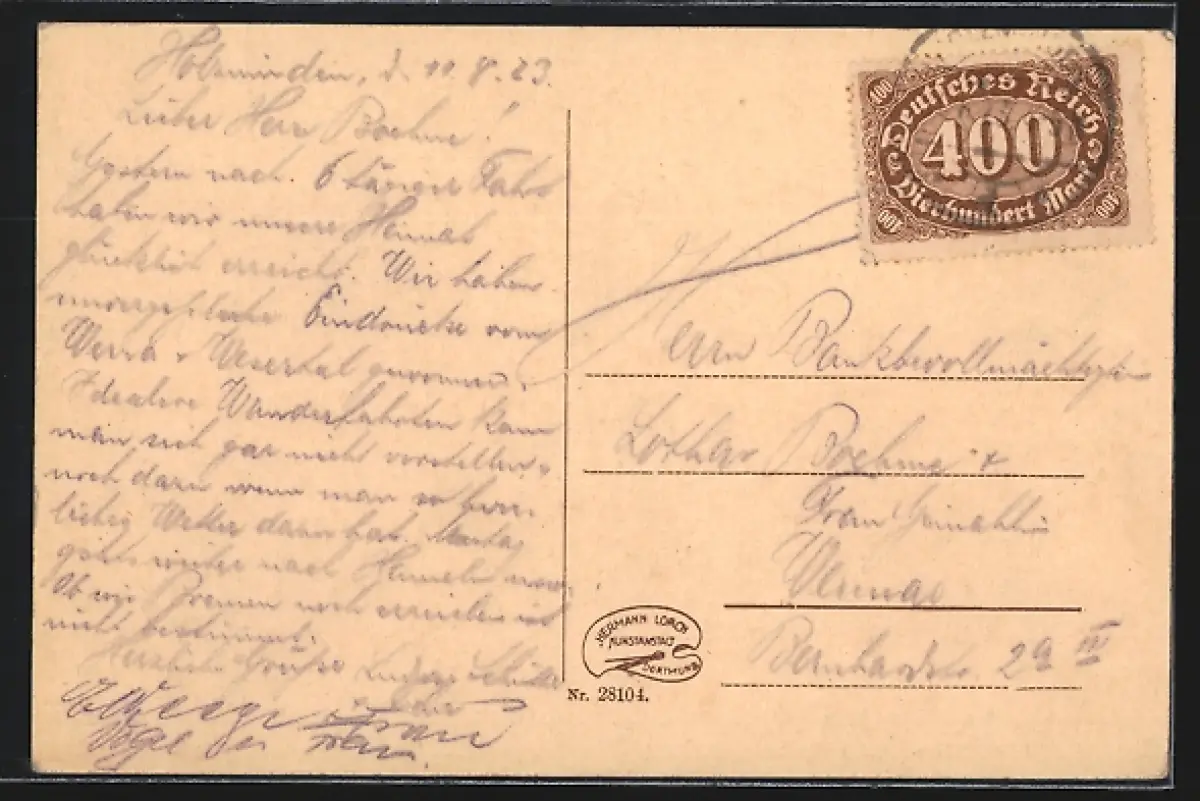 Holzminden, d. 11.8.23.
Lieber Herr Boehme!
Gestern nach 6 täniger Fahrt
haben wir unsere Heimat
glücklich erreicht. Wir haben
Eindrücke vom
Werra & Wesertal gewonnen.
Idealere Wanderfahrten kann
man sich gar nicht vorstellen &
noch dazu wenn man so herr-
lich Wetter dazu hat. Montag
gehts weiter nach Hameln
Ob wir Bremen noch erreichen ist
nicht bestimmt.
Herzliche Grüße
Frau
Vogel
Deutsches Reich
400
400
400
400
400
Vierhundert Mark
Herrn Bankbevollmächtigten
Lothar Boehme &
Frau Gemahlin
Weimar
Bernhardstr. 29 III
HERMANN LORCH
KUNSTANSTALT
DORTMUND
Nr. 28104.